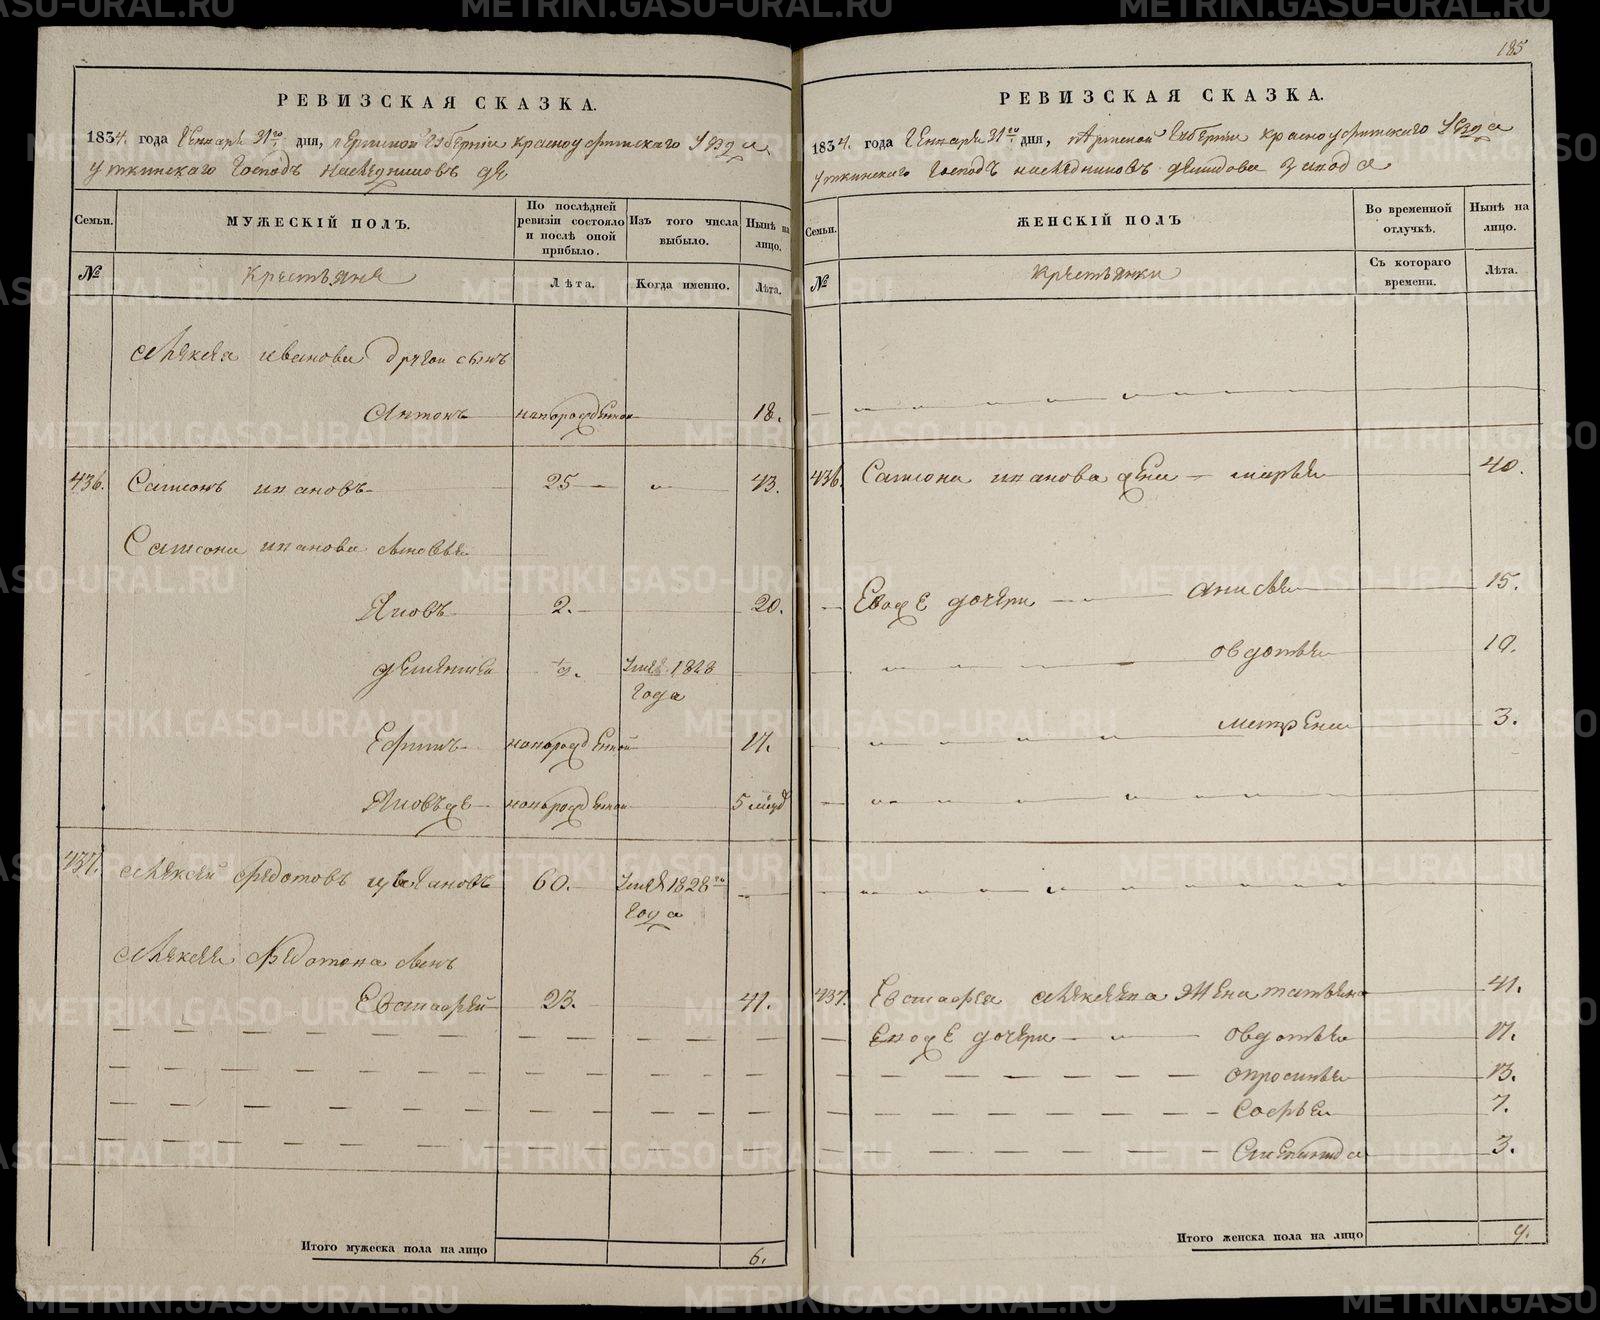 185
РЕВИЗСКАЯ СКАЗКА.
1834. года Генваря 31го дня, Пермской Губернiи Красноуфимскаго Уезда
Уткинскаго Господъ Наследниковъ де
Семьи.
МУЖЕСКIЙ ПОЛЪ.
По послѣдней ревизiи состояло и послѣ оной прибыло.
Изъ того числа выбыло.
Нынѣ на лицо.
№
Крестьяня
Лѣта.
Когда именно.
Лѣта.
Алексея Иванова другой сынъ
Антонъ новорожденой 18.
436. Самсонъ Ивановъ 25 43.
Самсона Иванова сыновья
Яковъ 2. 20.
Дементей 1828 года
Ефимъ новорожденой 17.
Яковъ же новорожденой 5
437. Алексей Федотовъ 60. 1828го года
Алексея Федотова сынъ
Евстафей 23. 41.
Итого мужеска пола на лицо 6.
РЕВИЗСКАЯ СКАЗКА.
1834. года Генваря 31го дня, Пермской Губернiи Красноуфимскаго Уезда
Уткинскаго Господъ наследниковъ демидова завода
Семьи.
ЖЕНСКIЙ ПОЛЪ
Во временной отлучкѣ.
Нынѣ на лицо.
№
Крестьянки
Съ котораго времени.
Лѣта.
436. Самсона Иванова жена Марья 40.
Ево же дочери Анисья 15.
Овдотья 10.
Матрена 3.
437. Евстафея Алексеева жена Татьяна 41.
Ево же дочери Овдотья 17.
Опросинья 13.
Софья 7.
3.
Итого женска пола на лицо 9.
METRIKI.GASO-URAL.RU